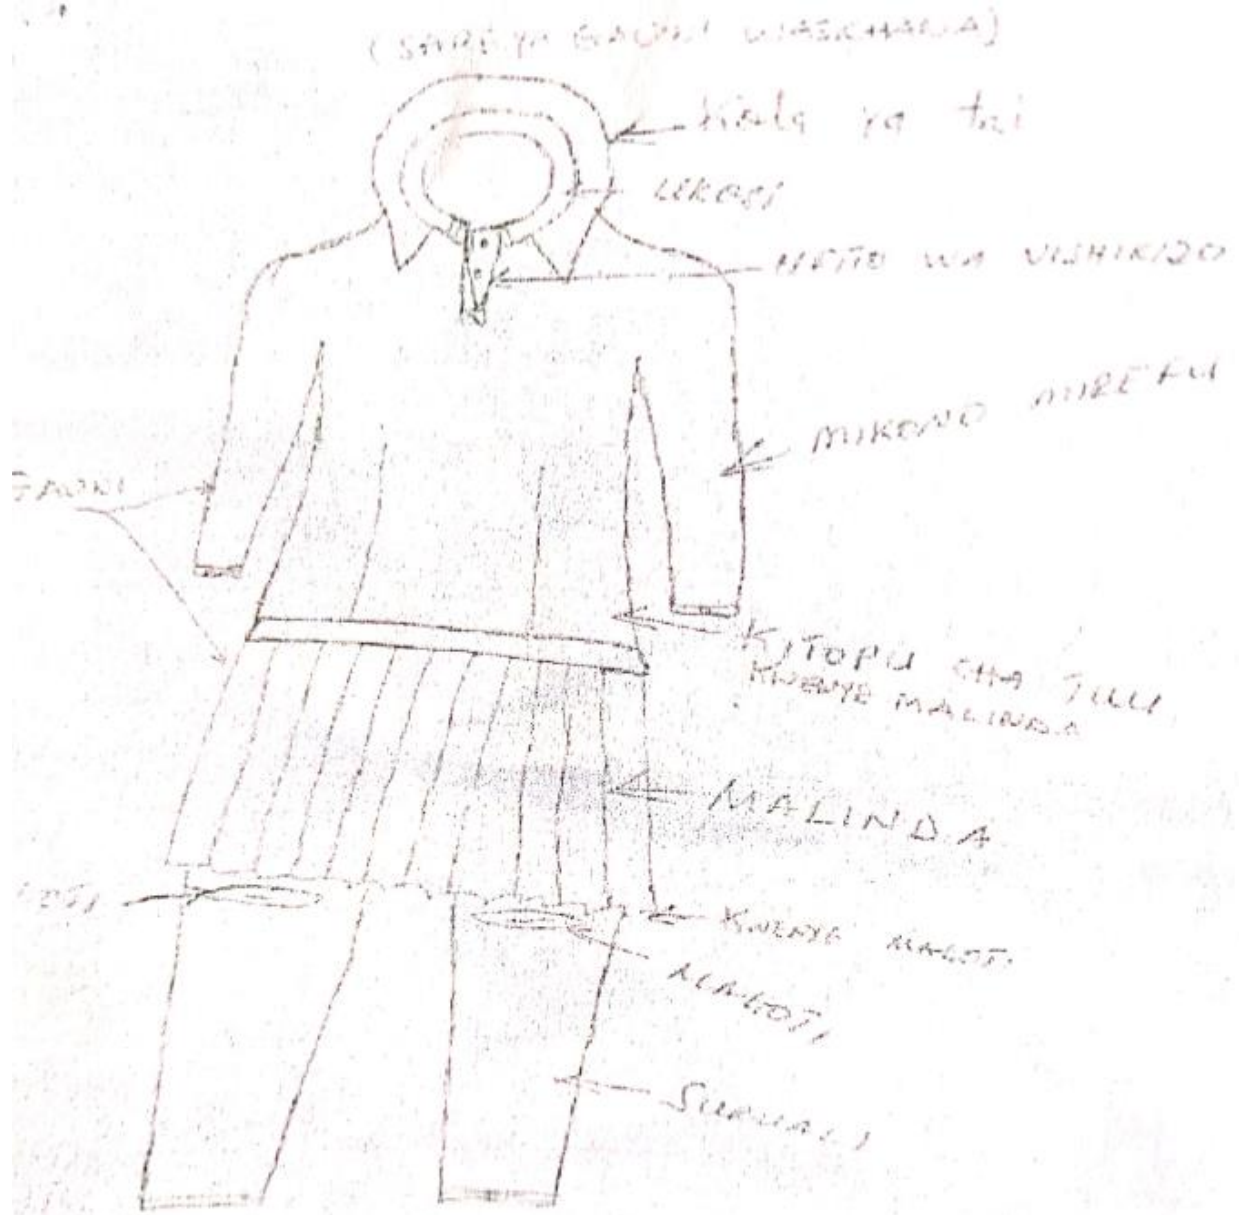 (SARE YA GAUNI WASICHANA)
Kola ya tai
LEKOSI
MFITO WA VISHIKIZO
MIKONO MIREFU
GAUNI
KITOPU CHA JUU
KWENYE MALINDA
MALINDA
KWENYE MAGOTI
MAGOTI
SURUALI